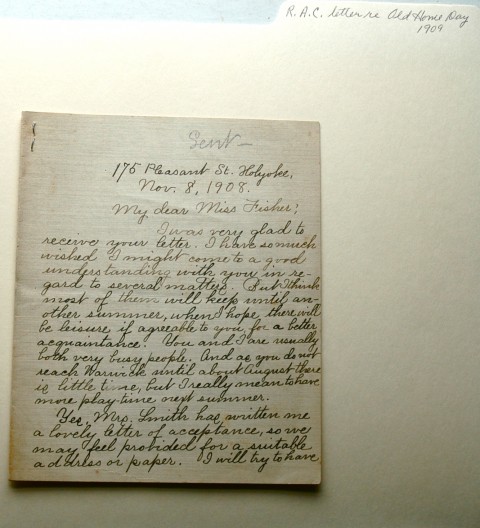 R.A.C. letter re Old Home Day
1909
Sent —
175 Pleasant St. Holyoke,
Nov. 8, 1908.
My dear Miss Fisher:
I was very glad to
receive your letter. I have so much
wished I might come to a good
understanding with you in re-
gard to several matters. But I think
most of them will keep until an-
other summer, when I hope there will
be leisure if agreeable to you, for a better
acquaintance. You and I are usually
both very busy people. And as you do not
reach Warwick until about August there
is little time, but I really mean to have
more play-time next summer.
Yes, Mrs. Smith has written me
a lovely letter of acceptance, so we
may feel provided for a suitable
address or paper. I will try to have